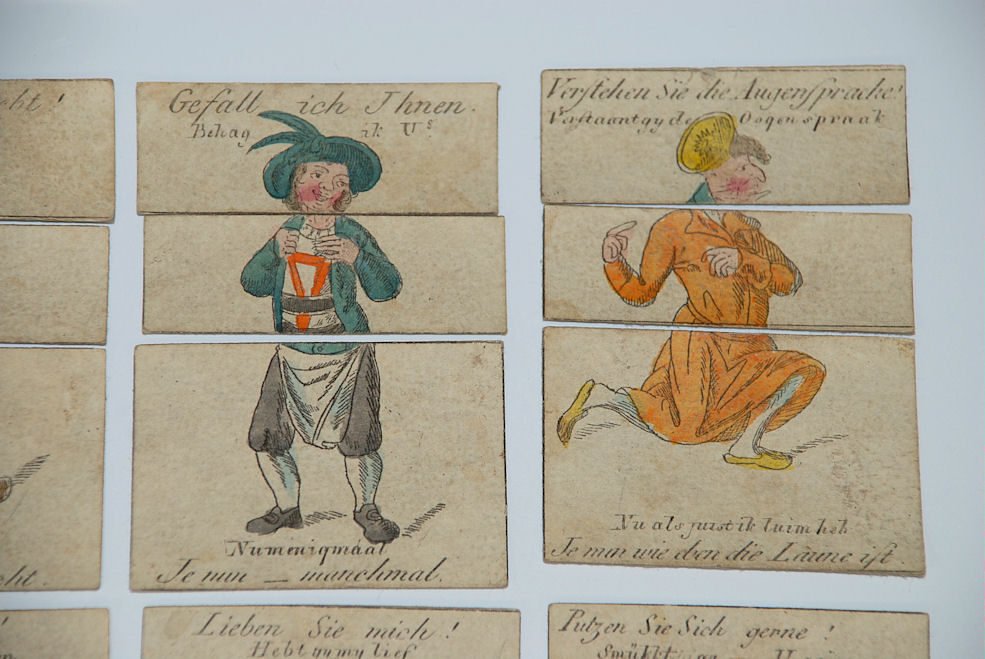 cht!
Gefall ich Ihnen.
Behag ik Us
Verstehen Sie die Augensprache!
Verstaant gy de Oogenspraak
Nu menigmaal
Je nun — manchmal.
Nu als juist ik luim heb
Je nun wie eben die Laune ist.
cht.
Lieben Sie mich!
Hebt gy my lief
Putzen Sie Sich gerne!